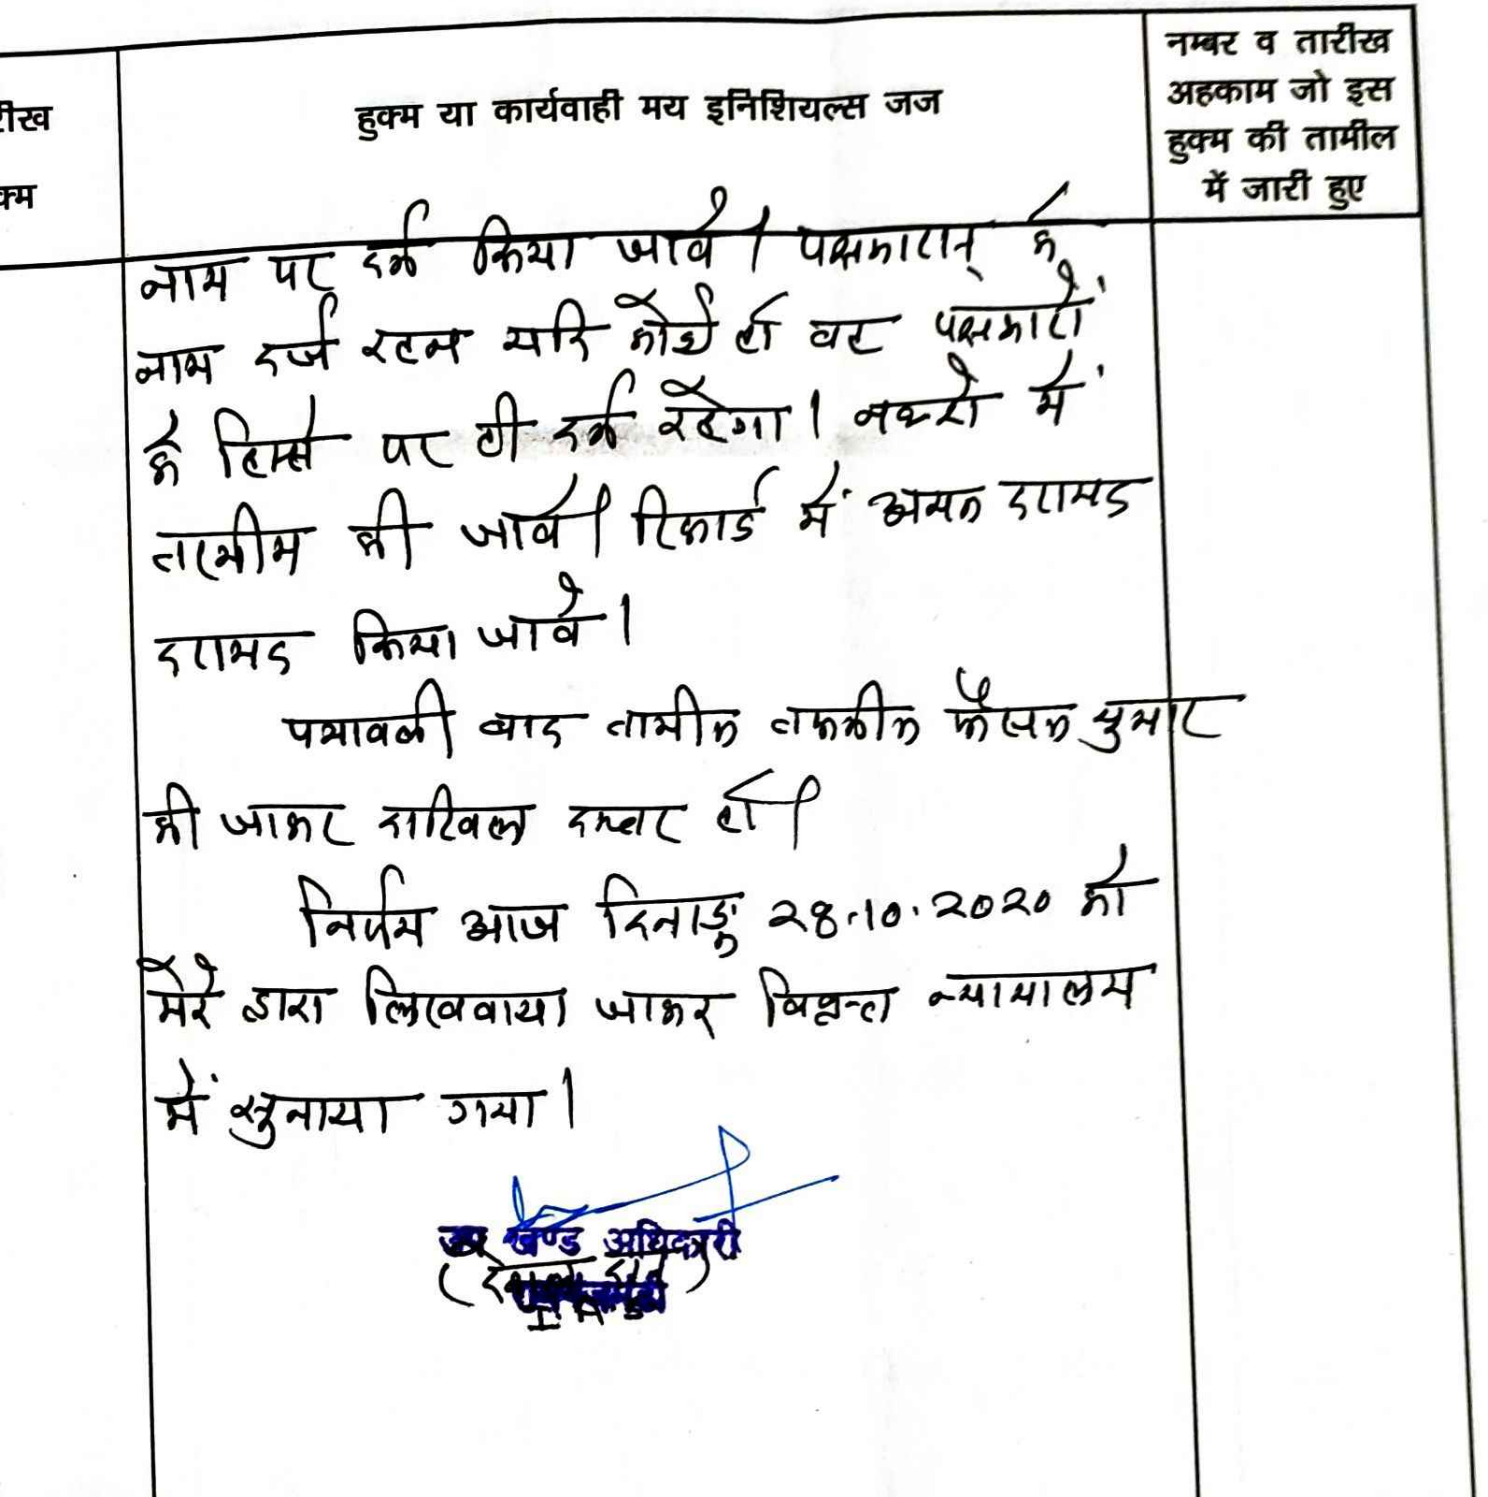 रीख
क्म
हुक्म या कार्यवाही मय इनिशियल्स जज
नम्बर व तारीख
अहकाम जो इस
हुक्म की तामील
में जारी हुए
नाम पर दर्ज किया जावे। पक्षकारान् के
नाम दर्ज रहन यदि कोई हो वह पक्षकारों
के हिस्से पर ही दर्ज रहेगा। नक्शे में
तरमीम की जावे। रिकार्ड में अमल दरामद
दरामद किया जावे।
पत्रावली बाद तामील तकमील फैसल शुमार
की जाकर दाखिल दफ्तर हो।
निर्णय आज दिनाङ्क 28.10.2020 को
मेरे द्वारा लिखवाया जाकर विवृत्त न्यायालय
में सुनाया गया।
उप खण्ड अधिकारी